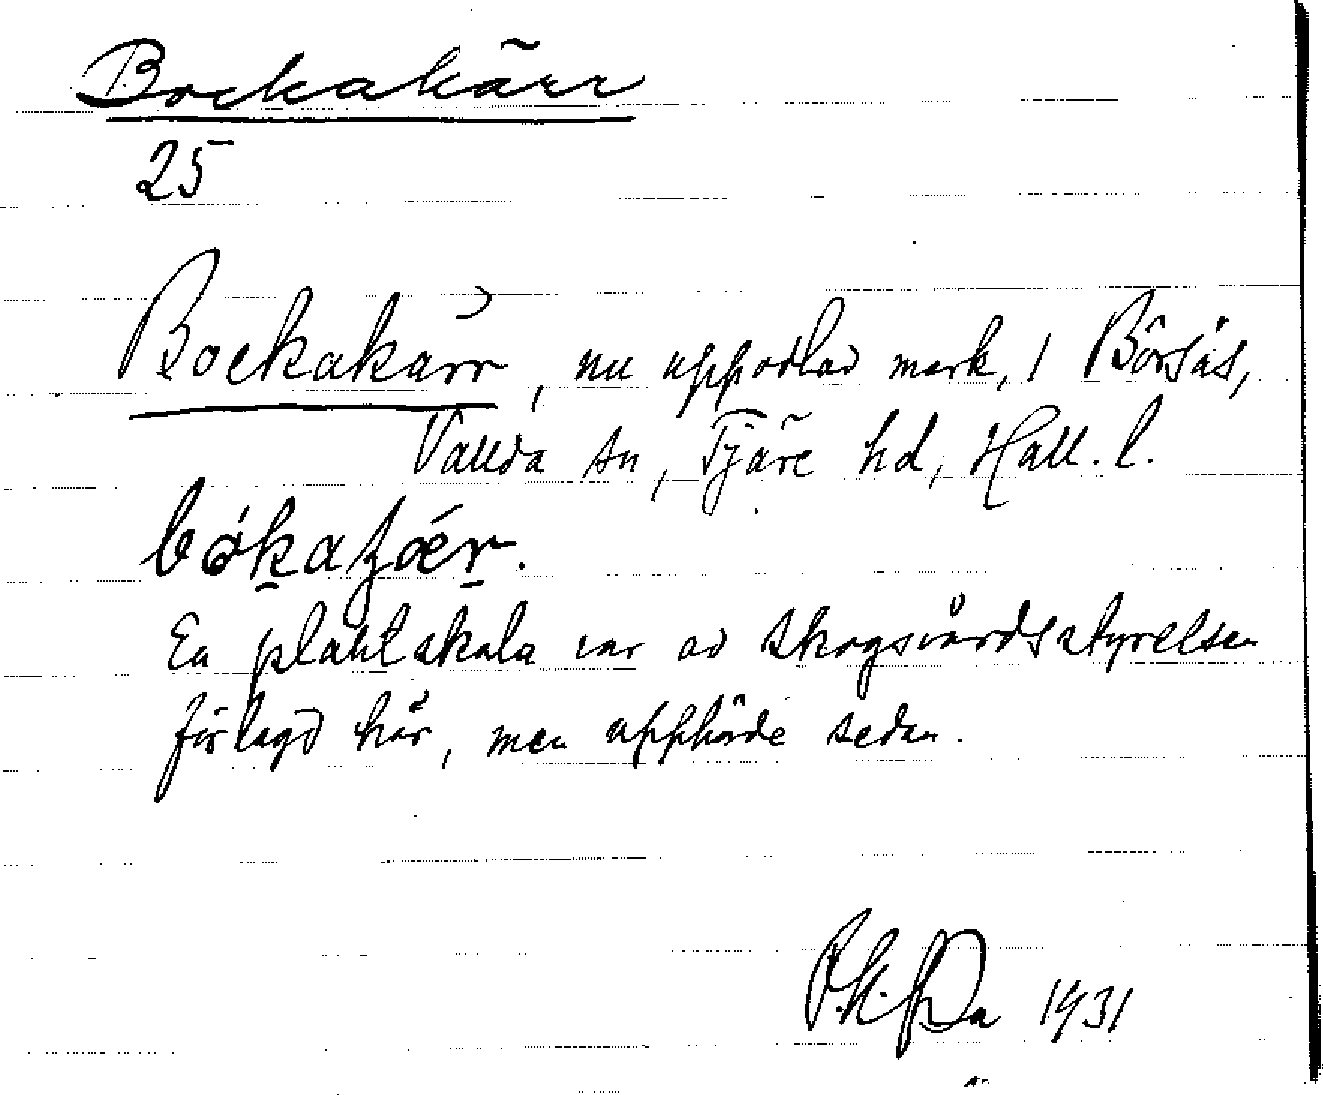 Bockakärr
25
Bockakärr, nu uppodlad mark, i Börsås,
Vallda sn, Fjäre hd, Hall. l.
En plantskola var av skogsvårdsstyrelsen
förlagd här, men upphörde sedan.
1931